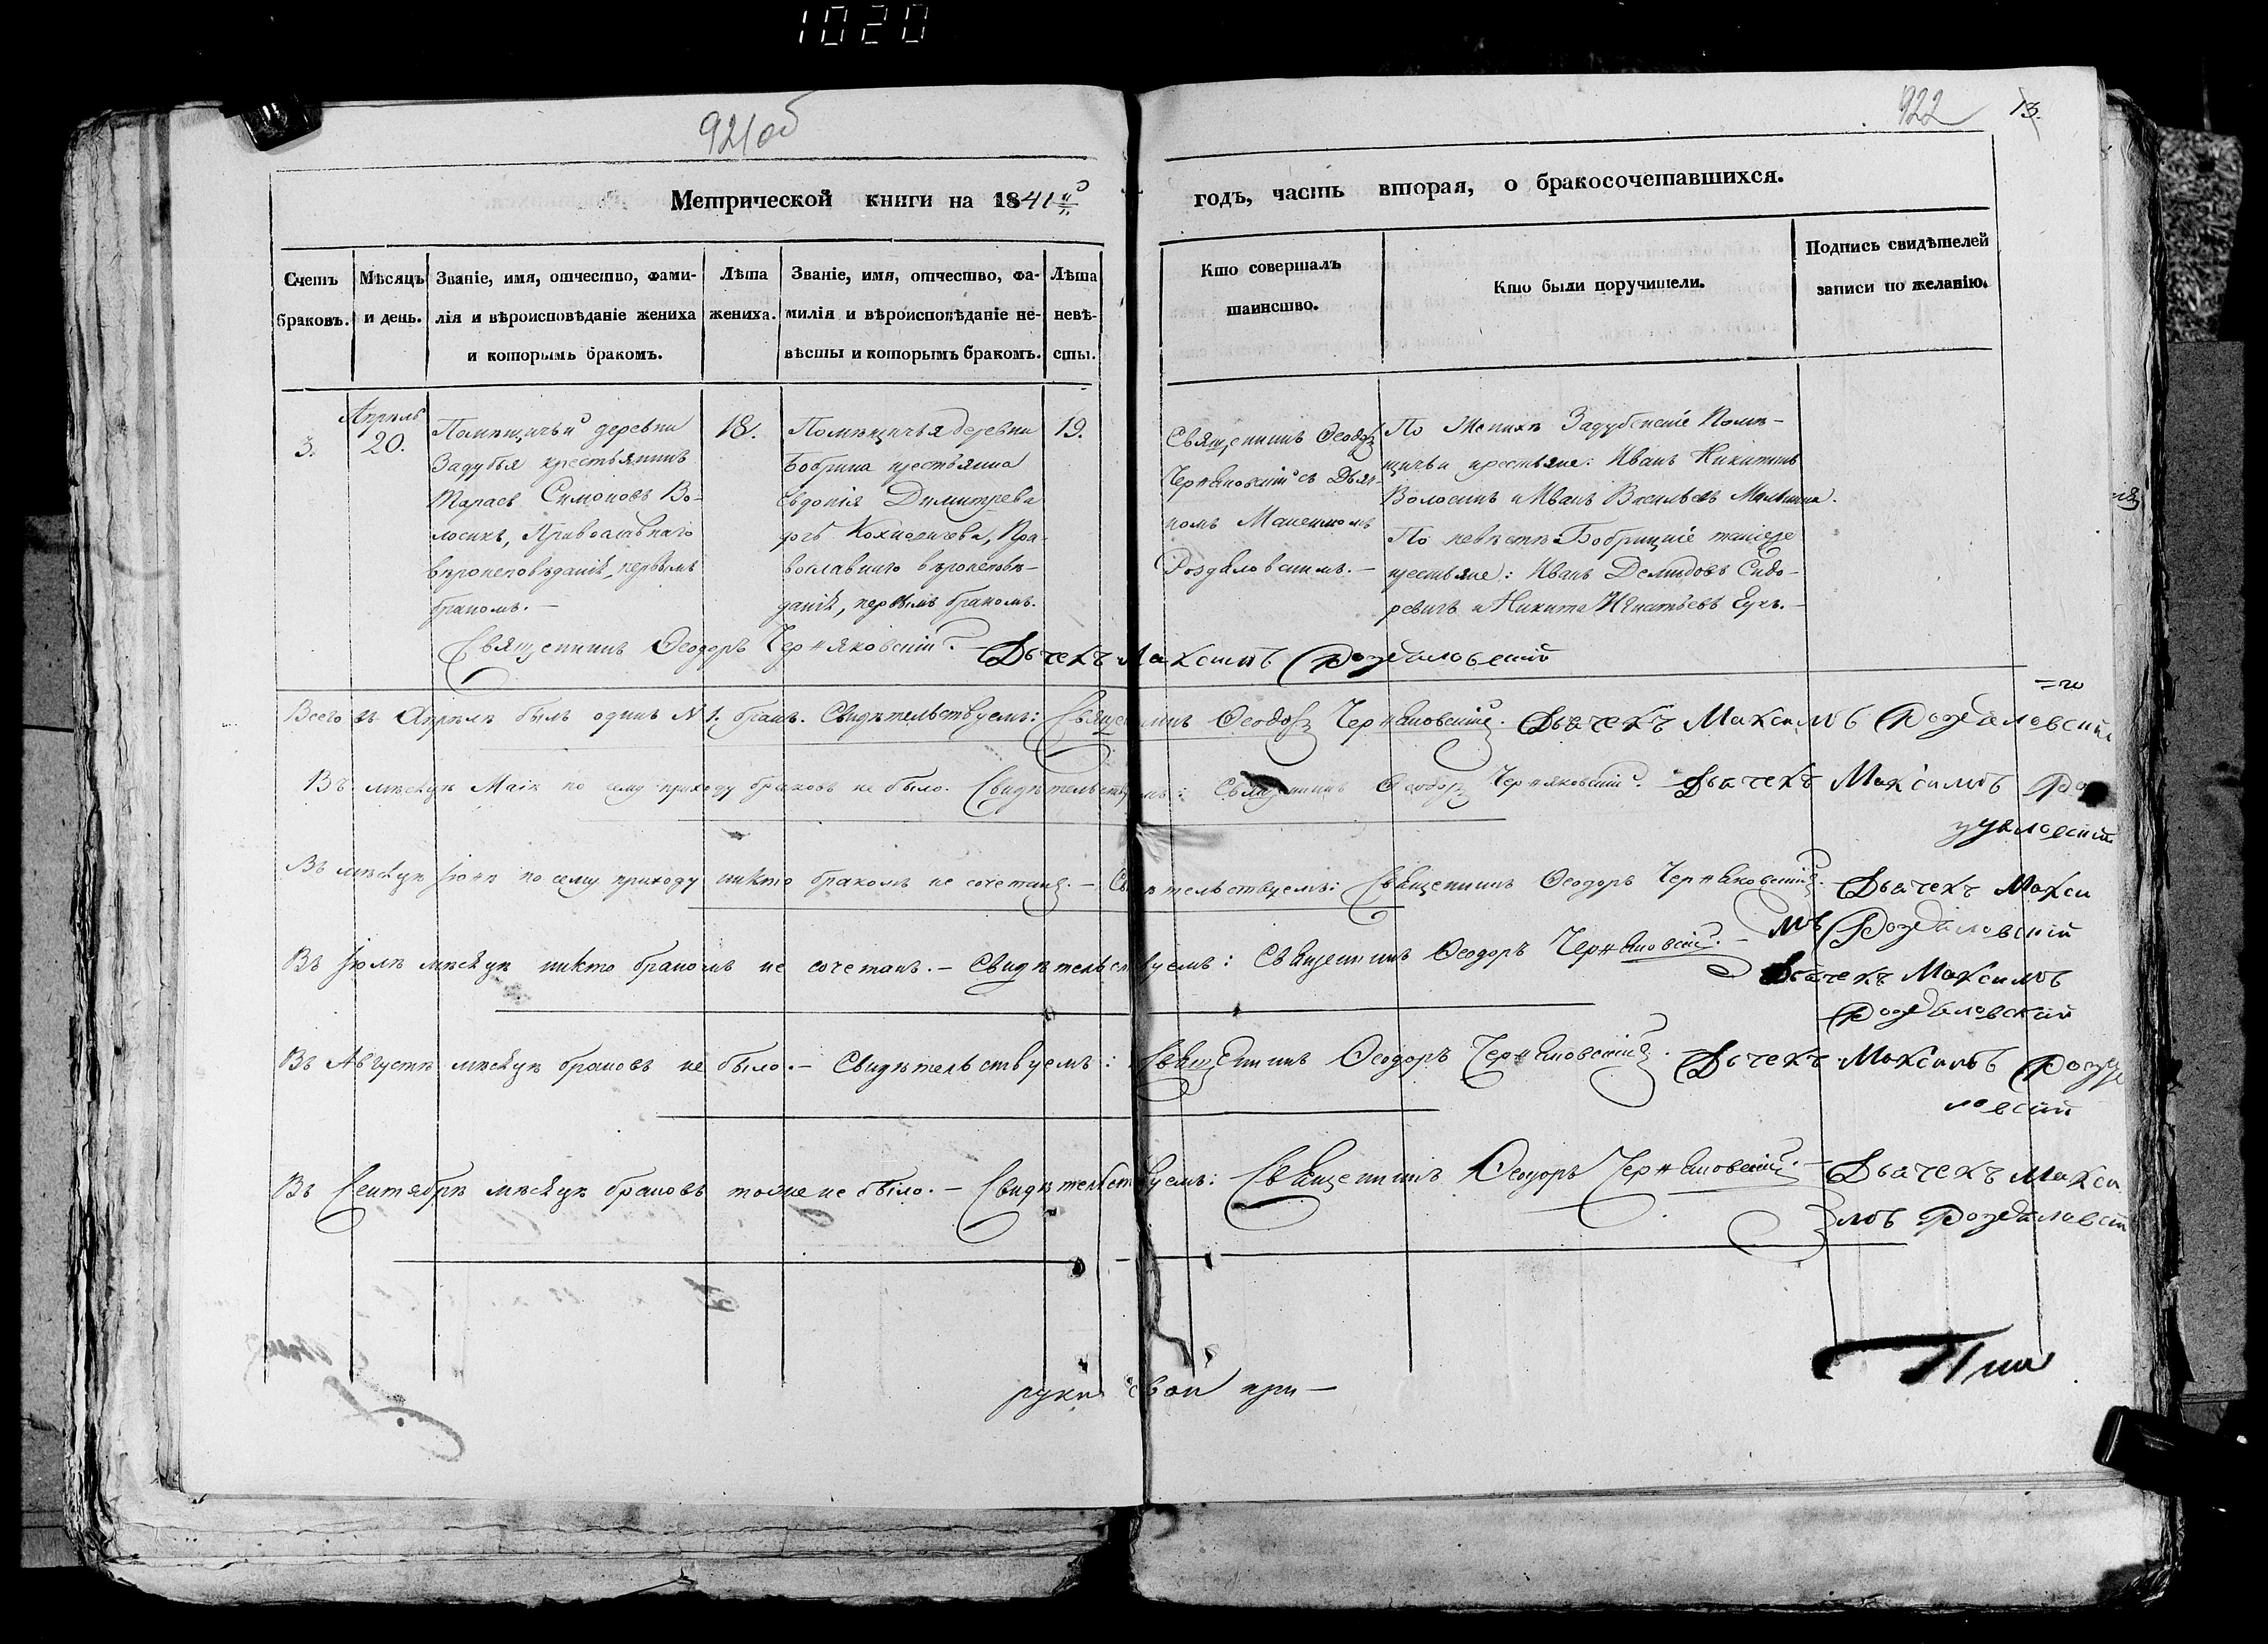 1020
921об
922 13.
Метрической книги на 1841й
годъ, часть вторая, о бракосочетавшихся.
Счетъ
браковъ.
Мѣсяцъ
и день.
Званіе, имя, отчество, фами-
лія и вѣроисповѣданіе жениха
и которымъ бракомъ.
Лѣта
жениха.
Званіе, имя, отчество, фа-
милія и вѣроисповѣданіе не-
вѣсты и которымъ бракомъ.
Лѣта
невѣ-
сты.
Кто совершалъ
таинство.
Кто были поручители.
Подпись свидѣтелей
записи по желанію.
3.
Апрѣль
20.
Помѣщичьей деревни
Задубья крестьянинъ
Тарасъ Симоновъ Во-
лосикъ, Православнаго
вѣроисповѣданія, первымъ
бракомъ.—
18.
Помѣщичья деревни
Бобрика крестьянка
Евдокія Димитрева
дочь Православнаго вѣроисповѣ-
данія, первымъ бракомъ.
19.
Священникъ Ѳеодоръ
Черняковскій съ Дьяч-
комъ Максимомъ
Роздяловскимъ.—
По Женихѣ Задубенскіе Помѣ-
щичьи крестьяне: Иванъ Никитинъ
Волосикъ и Иванъ Васильевъ
По невѣстѣ Бобрицкіе также
крестьяне: Иванъ Демидовъ Сидо-
ревичъ и Никита Игнатьевъ
Священникъ Ѳеодоръ Черняковскій.— Дьчекъ Максимъ Роздяловский
Всего въ Апрѣлѣ былъ одинъ N 1. бракъ. Свидѣтельствуемъ: Священникъ Ѳеодоръ Черняковскій. Дьячекъ Максимъ Роздяловский
Въ мѣсяцѣ Маіѣ по сему приходу браковъ не было. Свидѣтельствуемъ: Священникъ Ѳеодоръ Черняковскій. Дьячекъ Максимъ Ро
здяловский
Въ мѣсяцѣ Іюнѣ по сему приходу никто бракомъ не сочетанъ.— Свидѣтельствуемъ: Священникъ Ѳеодоръ Черняковскій. Дьячекъ Макси
мъ Роздяловский
Въ Іюлѣ мѣсяцѣ никто бракомъ не сочетанъ.— Свидѣтельствуемъ: Священникъ Ѳеодоръ Черняковскій.—
Дьячекъ Максимъ
Роздяловский
Въ Августѣ мѣсяцѣ браковъ не было.— Свидѣтельствуемъ: Священникъ Ѳеодоръ Черняковскій. Дьчекъ Максимъ Роздя
ловский
Въ Сентябрѣ мѣсяцѣ браковъ тоже не было.— Свидѣтельствуемъ: Священникъ Ѳеодоръ Черняковскій.— Дьячекъ Макси
мъ Роздяловск
руки свои при—